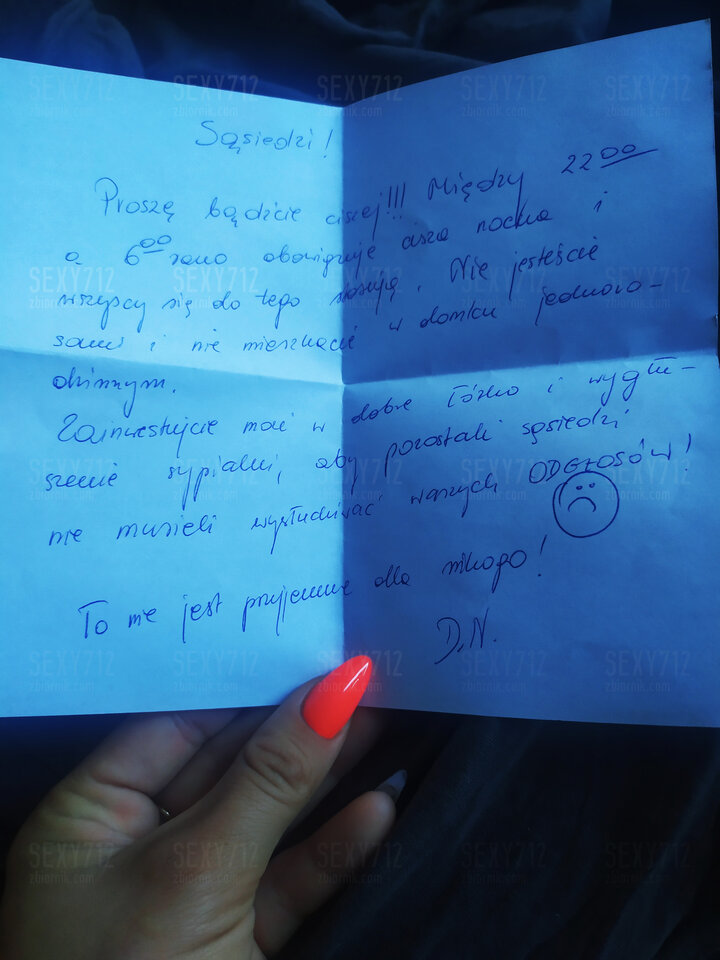 Sąsiedzi!
Proszę bądźcie ciszej!!! Między 22⁰⁰
a 6⁰⁰ rano obowiązuje cisza nocna i
wszyscy się do tego stosują. Nie jesteście
sami i nie mieszkacie w domku jednoro-
dzinnym.
Zainwestujcie moić w dobre łóżko i wygłu-
szenie sypialni, aby pozostali sąsiedzi
nie musieli wysłuchiwać waszych ODGŁOSÓW!
To nie jest przyjemne dla nikogo!
D.N.
SEXY712
zbiornik.com